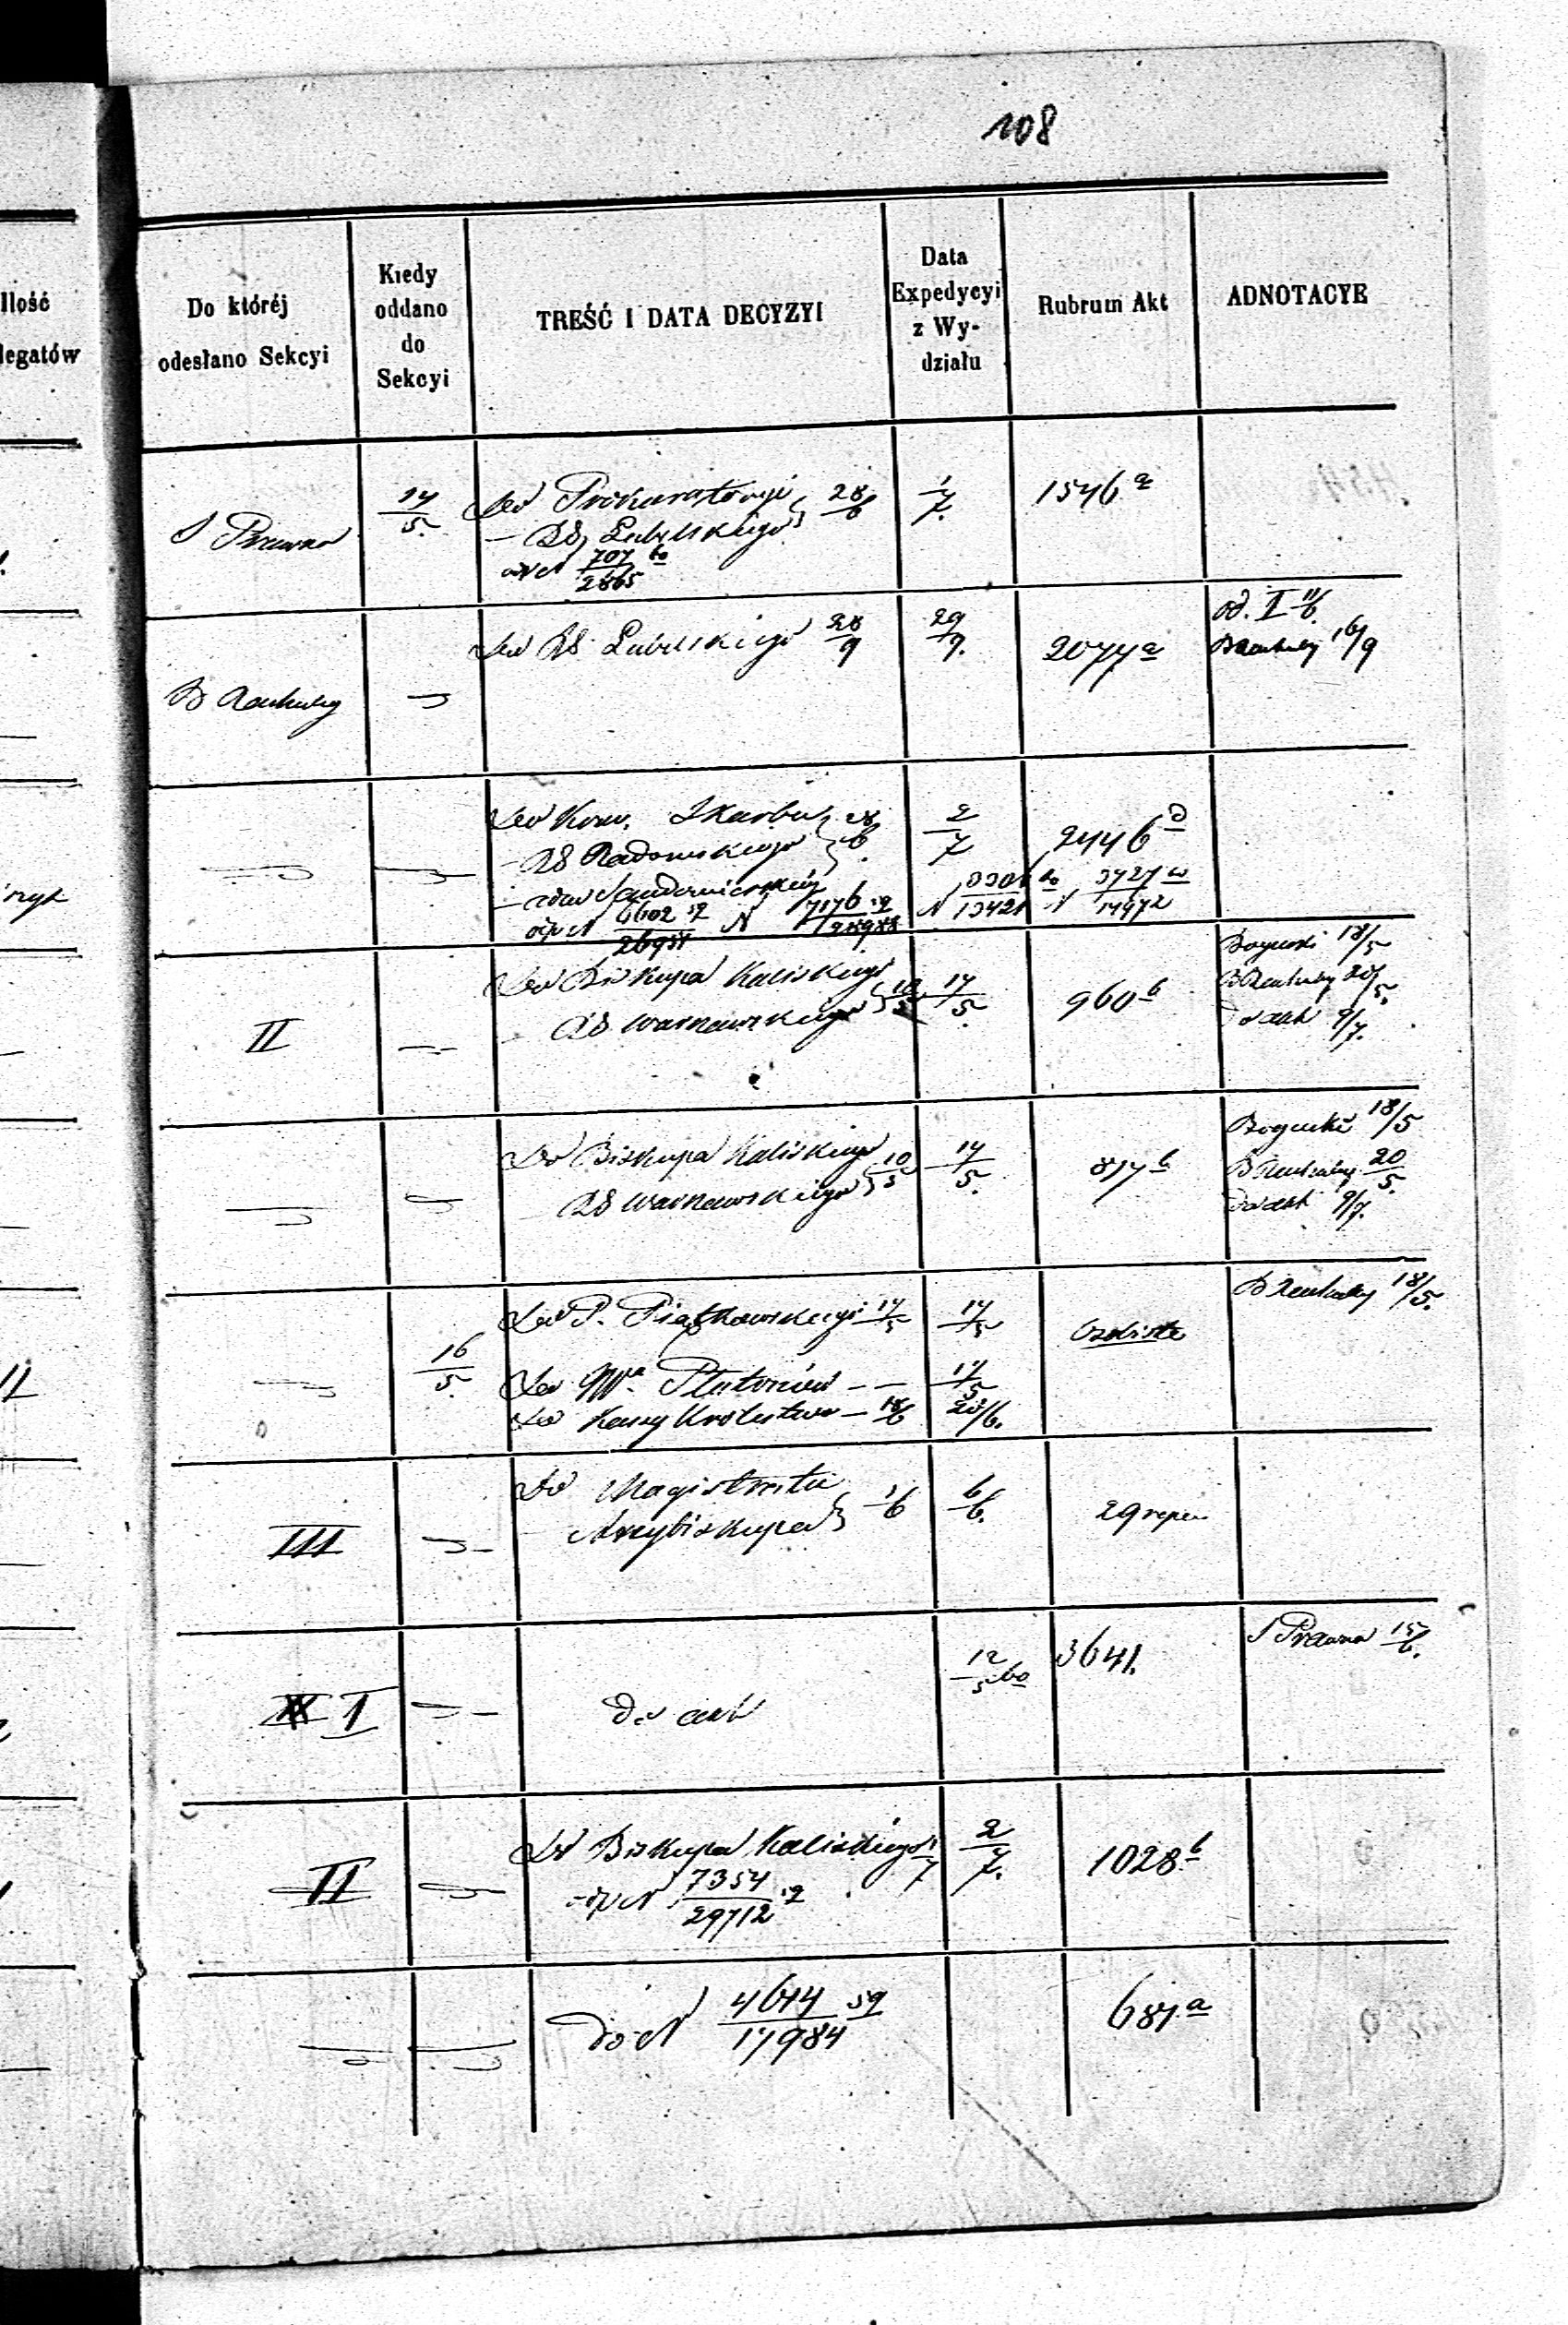 108
Ilość
legatów
Do któréj
odesłano Sekcyi
Kiedy
oddano
do
Sekcyi
TREŚĆ I DATA DECYZYI
Data
Expedycyi
z Wy-
działu
Rubrum Akt
ADNOTACYE
S Prawna
14/5.
Do Prokuratoryi
— RG Lubelskiego } 28/6
707/2865 60
1/7.
1546 a
B Rachuby
Do RG Lubelskiego 28/9
29/9.
2077 a
od. II 11/6.
B Rachuby 16/9
Do Kom. Skarbu
— RG Radomskiego } 28/6.
— Adm Sandomierskiej
6602/26951 N 7176/28988
2/7
N 13421 N 3727/14972
2446 d
II
Do Biskupa Kaliskiego
RG Warszawskiego } 10/5
17/5.
960 b
Bogucki 18/5
B Rachuby 20/5.
Do akt 9/7.
Do Biskupa Kaliskiego
RG Warszawskiego } 10/5
17/5.
817 b
Bogucki 18/5
B Rachuby 20/5.
Do akt 9/7.
16/5.
Do P. Piątkowskiego 17/5
Do Wa. — —
Do Kassy Królestwa — 18/6
17/5
17/5
20/6.
Osobiste
B Rachuby 18/5.
III
Do Magistratu
Arcybiskupa } 1/6
6/6.
29 reper
I
Do akt
12/5 60
3641.
S Prawna 15/6.
II
Do Biskupa Kaliskiego 1/7
7354/29712
2/7.
1028 b
do N 4644/17984 59
681 a